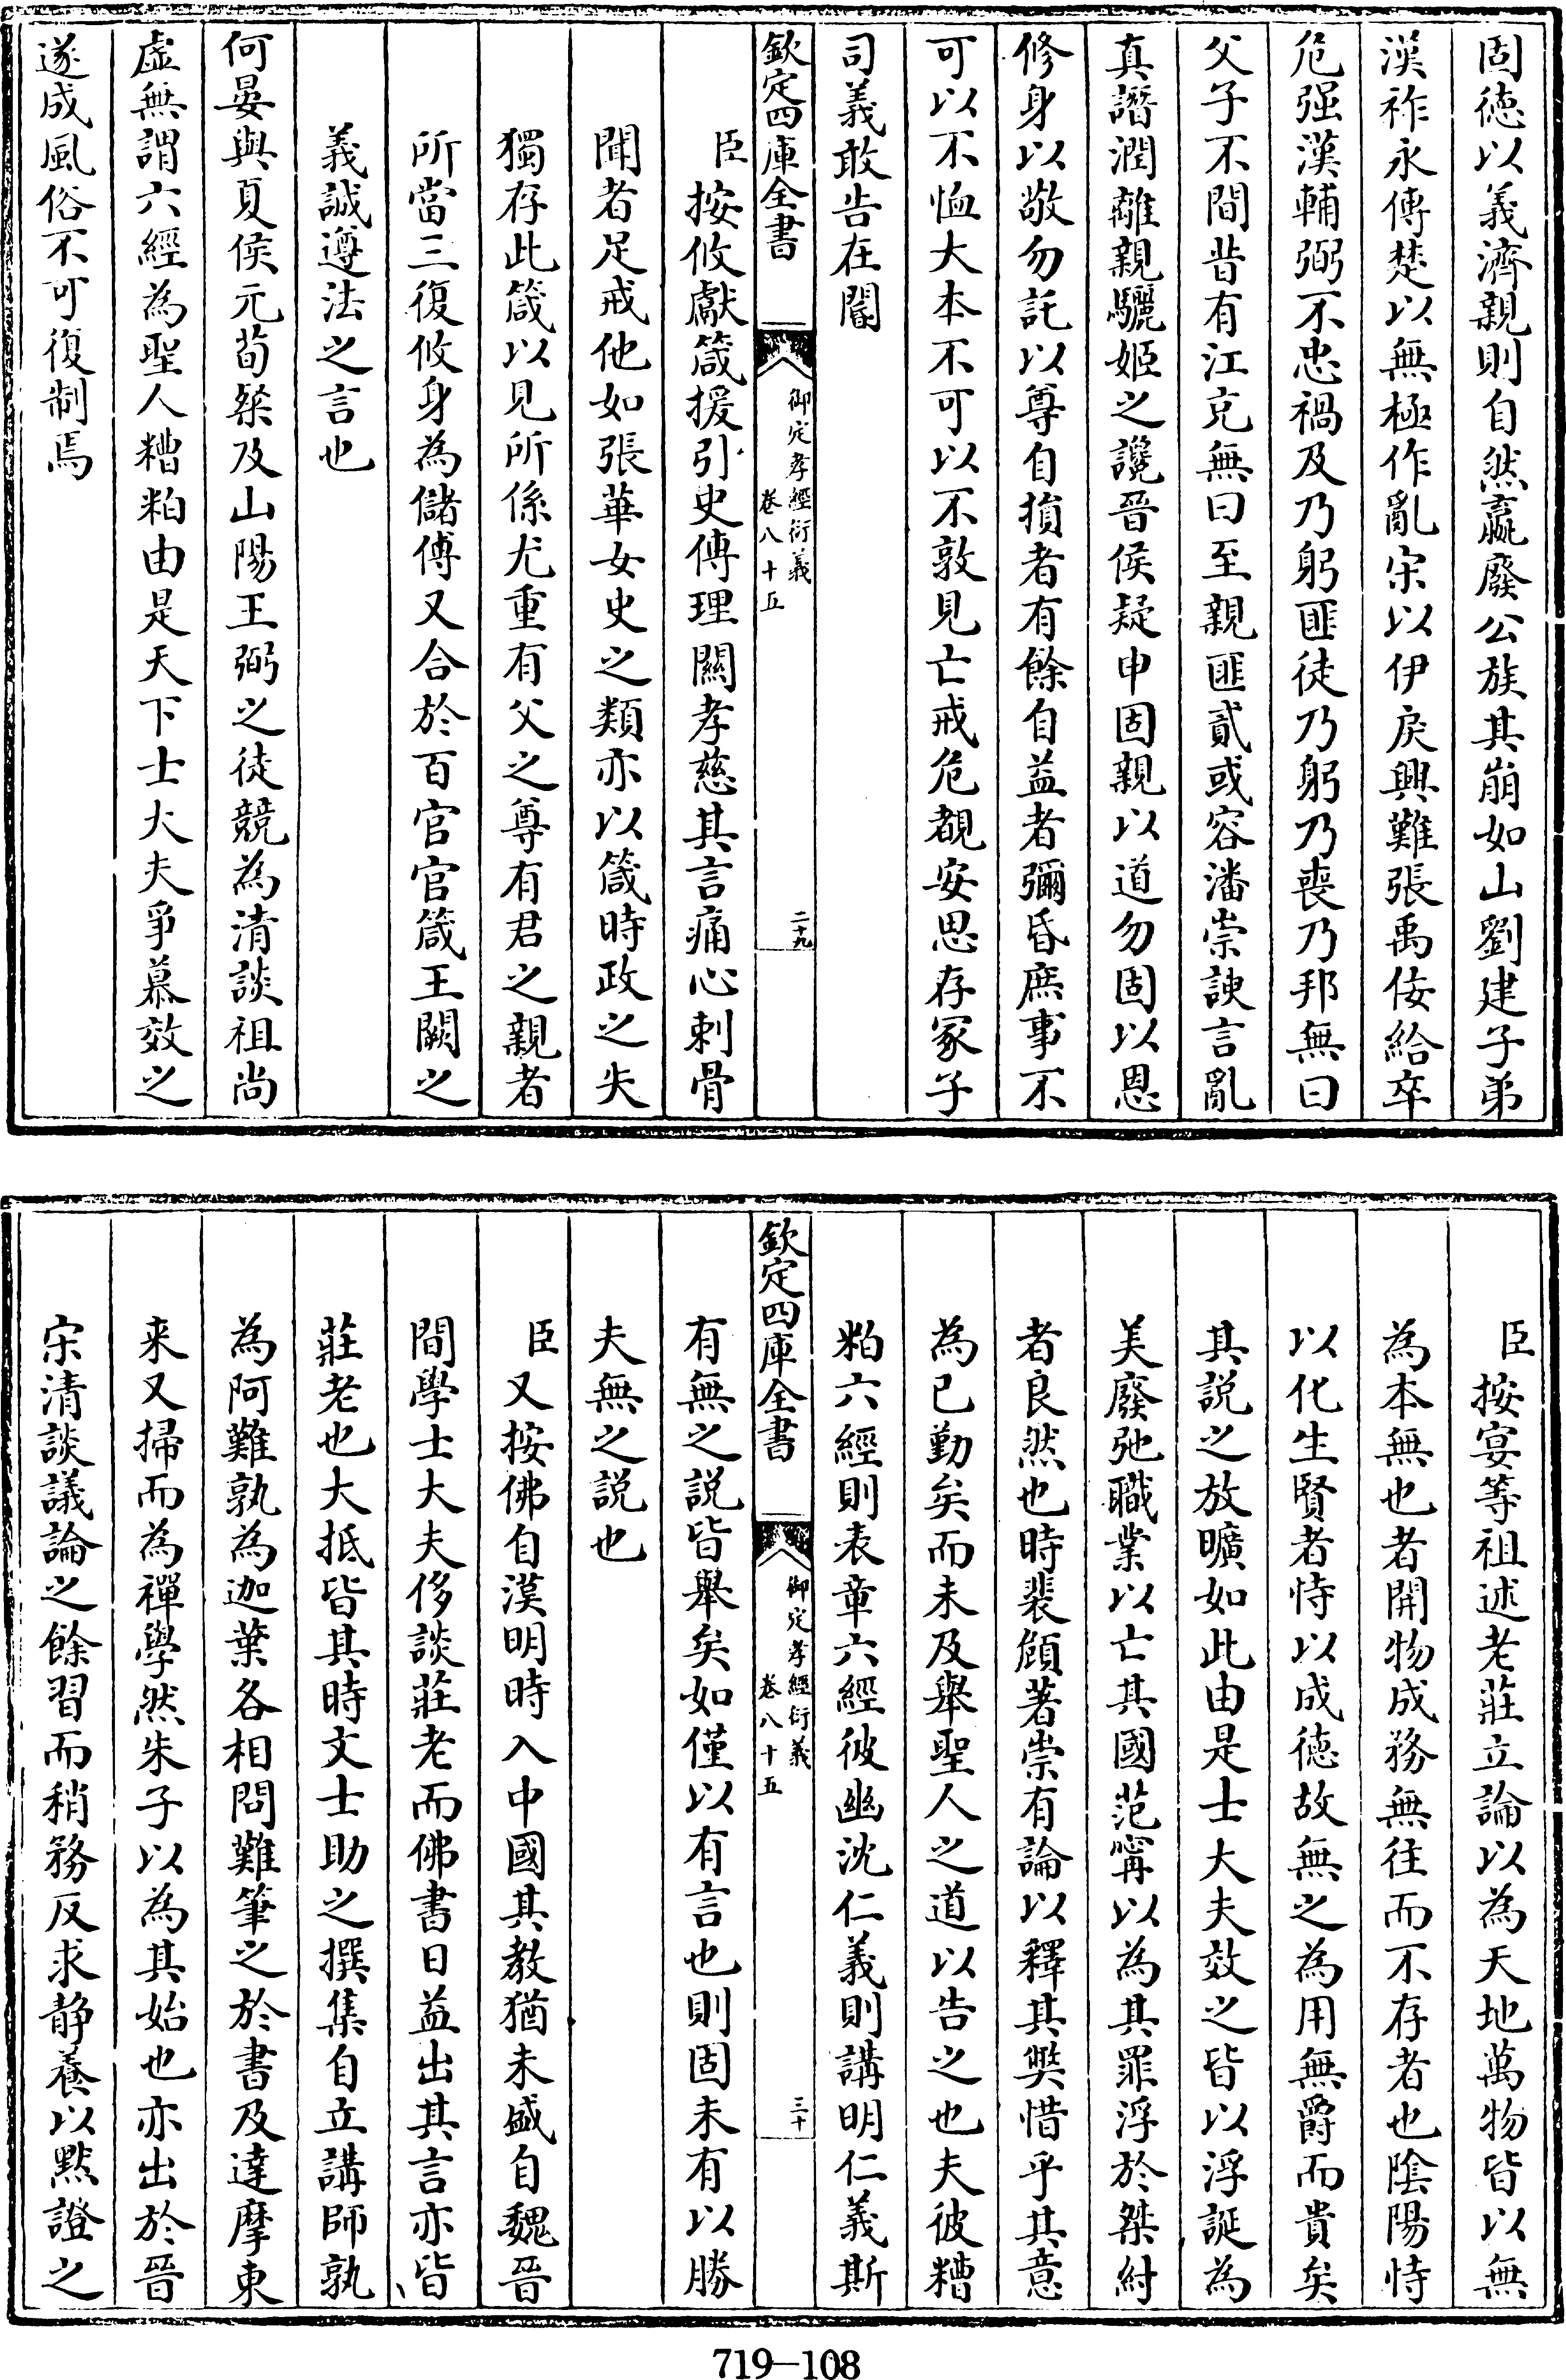 固徳以義濟親則自然嬴廢公族其崩如山劉建子弟
漢祚永傳楚以無極作亂宋以伊戾興難張禹佞給卒
危强漢輔弼不忠禍及乃躬匪徒乃躬乃喪乃邦無曰
父子不間昔有江充無曰至親匪貳或容潘崇諛言亂
真譖潤離親驪姬之讒晉侯疑申固親以道勿固以恩
修身以敬勿託以尊自損者有餘自益者彌昏庶事不
可以不恤大本不可以不敦見亡戒危覩安思存冢子
司義敢告在閽
欽定四庫全書
御定孝經衍義
卷八十五
二十九
臣按攸獻箴援引史傳理關孝慈其言痛心刺骨
聞者足戒他如張華女史之類亦以箴時政之失
獨存此箴以見所係尤重有父之尊有君之親者
所當三復攸身為儲傅又合於百官官箴王闕之
義誠遵法之言也
何晏與夏侯元荀粲及山陽王弼之徒競為清談祖尚
虚無謂六經為聖人糟粕由是天下士大夫爭慕效之
遂成風俗不可復制焉
臣按宴等祖述老莊立論以為天地萬物皆以無
為本無也者開物成務無往而不存者也陰陽恃
以化生賢者恃以成德故無之為用無爵而貴矣
其説之放曠如此由是士大夫效之皆以浮誕為
美廢弛職業以亡其國范甯以為其罪浮於桀紂
者良然也時裴頠著崇有論以釋其弊惜乎其意
為已勤矣而未及舉聖人之道以告之也夫彼糟
粕六經則表章六經彼幽沈仁義則講明仁義斯
欽定四庫全書
御定孝經衍義
卷八十五
三十
有無之説皆舉矣如僅以有言也則固未有以勝
夫無之説也
臣又按佛自漢明時入中國其教猶未盛自魏晉
間學士大夫侈談莊老而佛書日益出其言亦皆
莊老也大抵皆其時文士助之撰集自立講師孰
為阿難孰為迦葉各相問難筆之於書及達摩東
来又掃而為禪學然朱子以為其始也亦出於晉
宋清談議論之餘習而稍務反求静養以黙證之
719—108